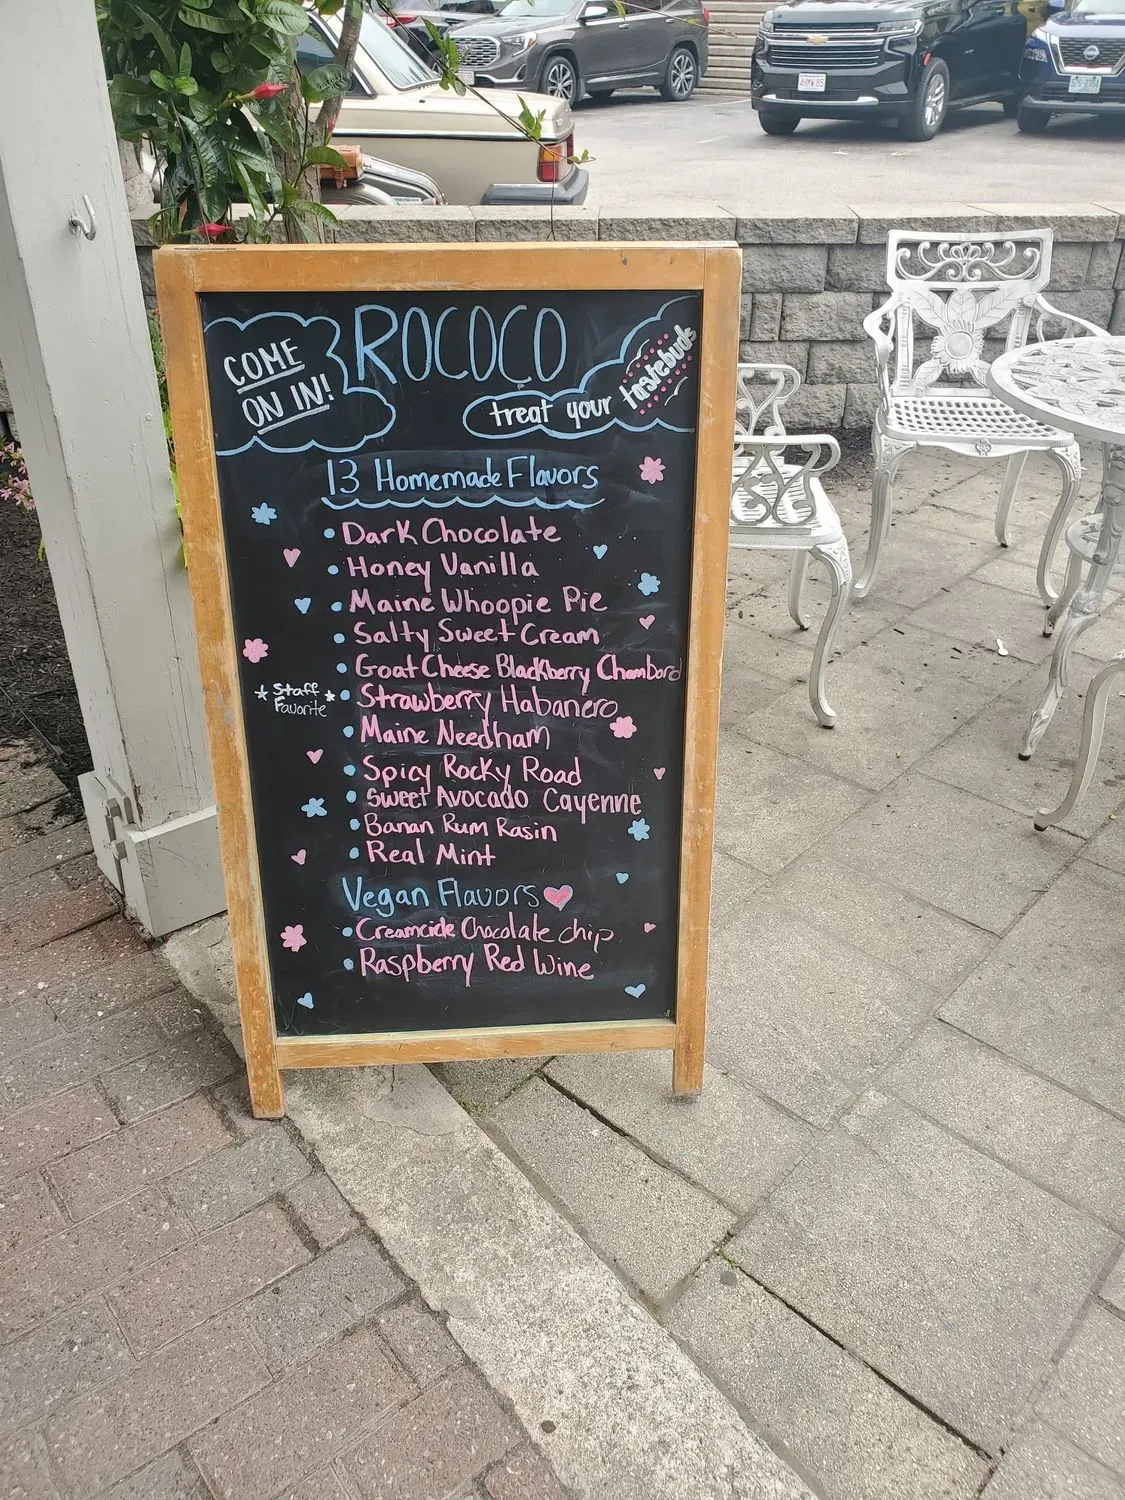 COME
ON IN!
ROCOCO
treat your tastebuds
13 Homemade Flavors
• Dark Chocolate
• Honey Vanilla
• Maine Whoopie Pie
• Salty Sweet Cream
• Goat Cheese Blackberry Chambord
★ Staff ★
Favorite
• Strawberry Habanero
• Maine Needham
• Spicy Rocky Road
• Sweet Avocado Cayenne
• Banan Rum Rasin
• Real Mint
Vegan Flavors
• Creamcicle Chocolate chip
• Raspberry Red Wine